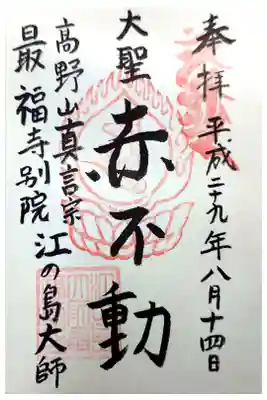 奉拝 平成二十九年八月十四日
大聖 赤不動
高野山真言宗
最福寺別院 江の島大師